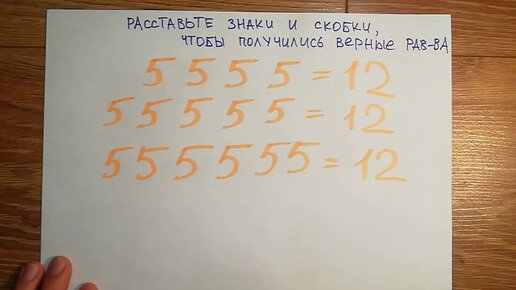 РАССТАВЬТЕ ЗНАКИ И СКОБКИ,
ЧТОБЫ ПОЛУЧИЛИСЬ ВЕРНЫЕ РАВ-ВА
5 5 5 5 = 12
5 5 5 5 5 = 12
5 5 5 5 5 5 = 12